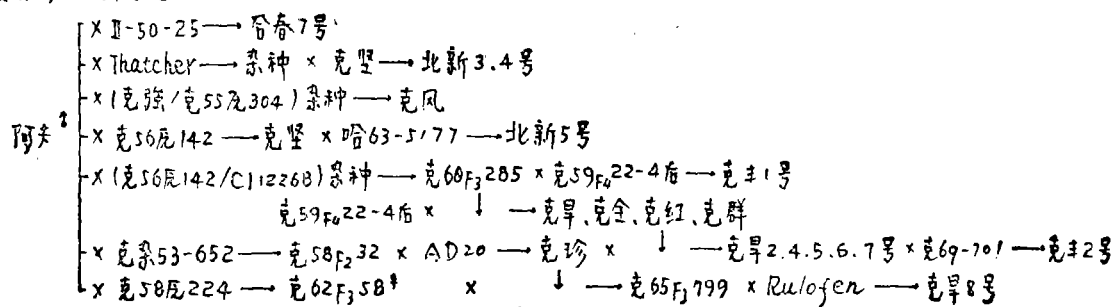 × II-50-25 → 合春7号
× Thatcher → 杂种 × 克坚 → 北新3.4号
× (克强/克55鉴304) 杂种 → 克风
阿夫 × 克56鉴142 → 克坚 × 哈63-5177 → 北新5号
× (克56鉴142/CI12268) 杂种 → 克60F₃285 × 克59F₄22-4后 → 克丰1号
克59F₄22-4后 × ↓ → 克旱、克全、克红、克群
× 克杂53-652 → 克58F₂32 × AD20 → 克珍 × ↓ → 克旱2.4.5.6.7号 × 克69-701 → 克丰2号
× 克58鉴224 → 克62F₃58 × ↓ → 克65F₃799 × Rulofen → 克旱8号